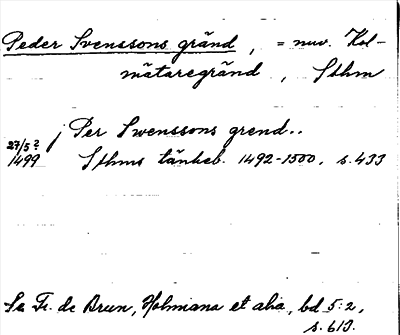 Peder Svenssons gränd, = nuv. Kol-
mätaregränd, Sthm
j Per Swenssons grend..
27/5? 1499
Sthms tänkeb. 1492-1500, s. 433
Se Fr. de Brun, Holmiana et alia, bd 5:2,
s. 613.